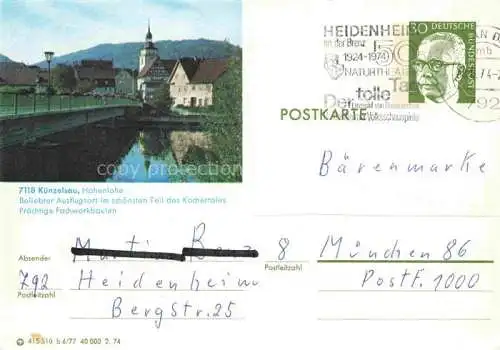 HEIDENHEIM
an der Brenz
1924-1974 50
NATURTHEATER
30
DEUTSCHE BUNDESPOST
tolle
Der
Volksschauspiele
POSTKARTE
copyright protection
7118 Künzelsau, Hohenlohe
Beliebter Ausflugsort im schönsten Teil des Kochertales
Prächtige Fachwerkbauten
Bärenmarke
Absender
Martin Benz
792 Heidenheim
Postleitzahl
Bergstr. 25
8 München 86
Postleitzahl
Postf. 1000
b 6/77 40 000 2. 74